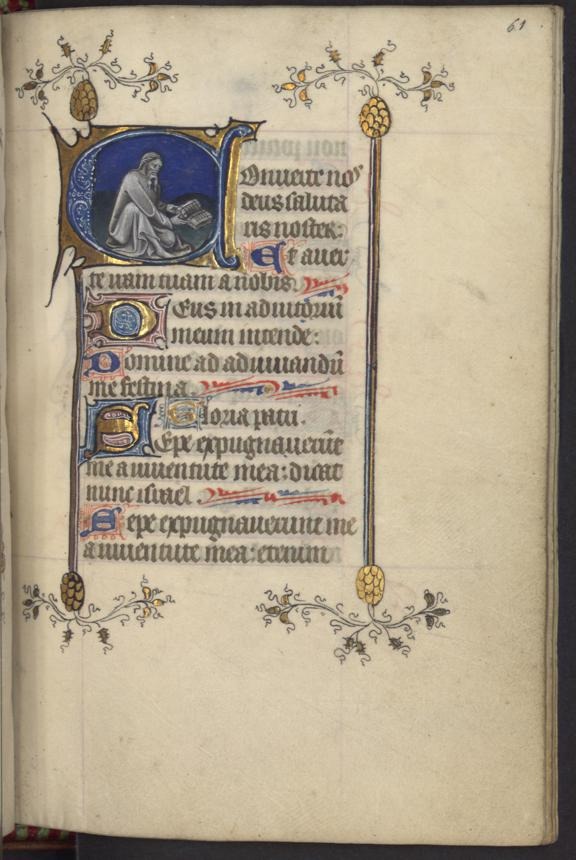 61
Conuerte nos
deus saluta
ris noster:
Et auer
te iram tuam a nobis.
Deus in adiutoriū
meum intende:
Domine ad adiuuandū
me festina.
Gloria patri.
Sepe expugnauerūt
me a iuuentute mea: dicat
nunc israel.
Sepe expugnauerunt me
a iuuentute mea: etenim